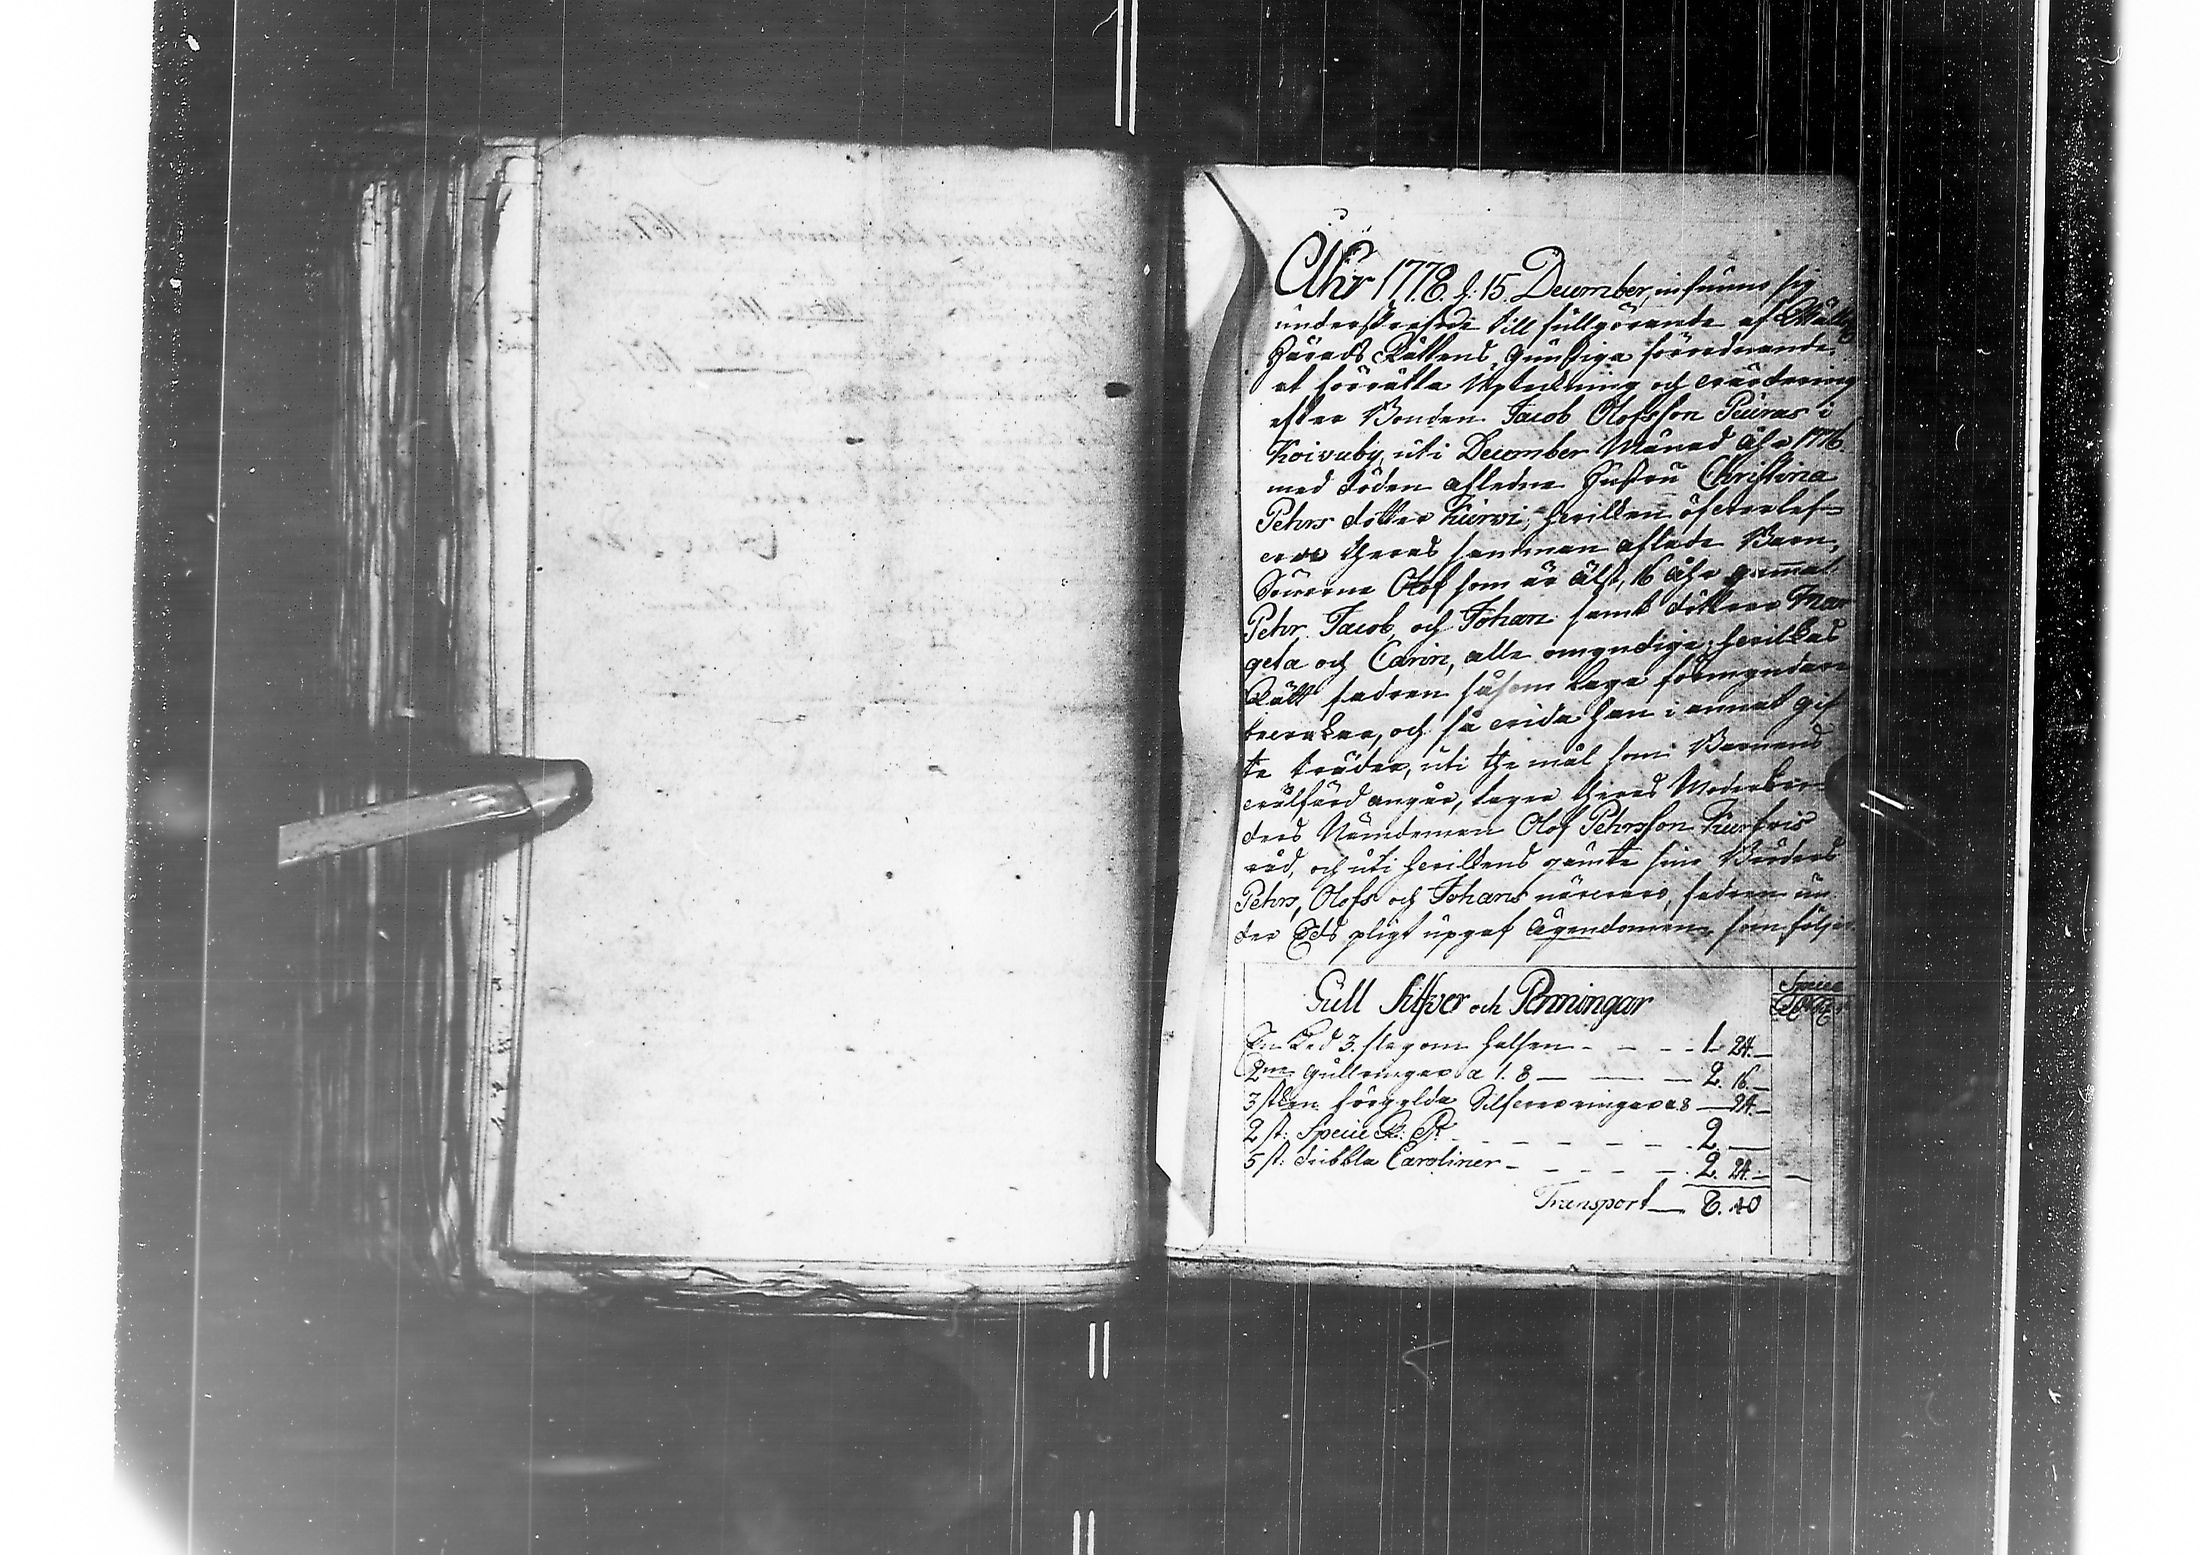 Åhr 1778. d. 15. December, infunno sig
underskrefne till fullgörande af
Härads Rättens gunstiga förordnande,
at förrätta Upteckning och värdering
efter Bonden Jacob Olofsson Peuras i
Koivuby, uti December Månad Åhr 1776.
med döden afledne Hustru Christina
Pehrs dotter Kurvi, hvilken öfverlef-
var theras samman aflade Barn,
Sönerne Olof som är älst, 16 åhr gammal
Pehr Jacob, och Johan samt döttrar Mar
geta och Carin, alle omyndige, hvilkas
Rätt fadren såsom Laga förmyndare
bevakar, och så vida han i annat gif
te träder, uti the mål som Barnens
välfärd angår, tager theras Moderbro-
ders Nämdeman Olof Pehrsson Kurfvis
råd, och uti hvilkens jämte sine Bröders
Pehrs, Olofs och Johans närvaro, fadren un
der Eds pligt upgaf Ägendomen som följer
Specie
Gull Silfver och Penningar
En Ked 3. slag om halsen - - - - 1. 24. -
2ne gullringar a 1. 8 - - - 2. 16. -
3 stken förgylda Silfverringar a 8 - 24. -
2 st: Specie R: Dr - - - - - - 2. -
5 st: dubbla Caroliner - - - - - 2. 24. -
Transport - 8. 40